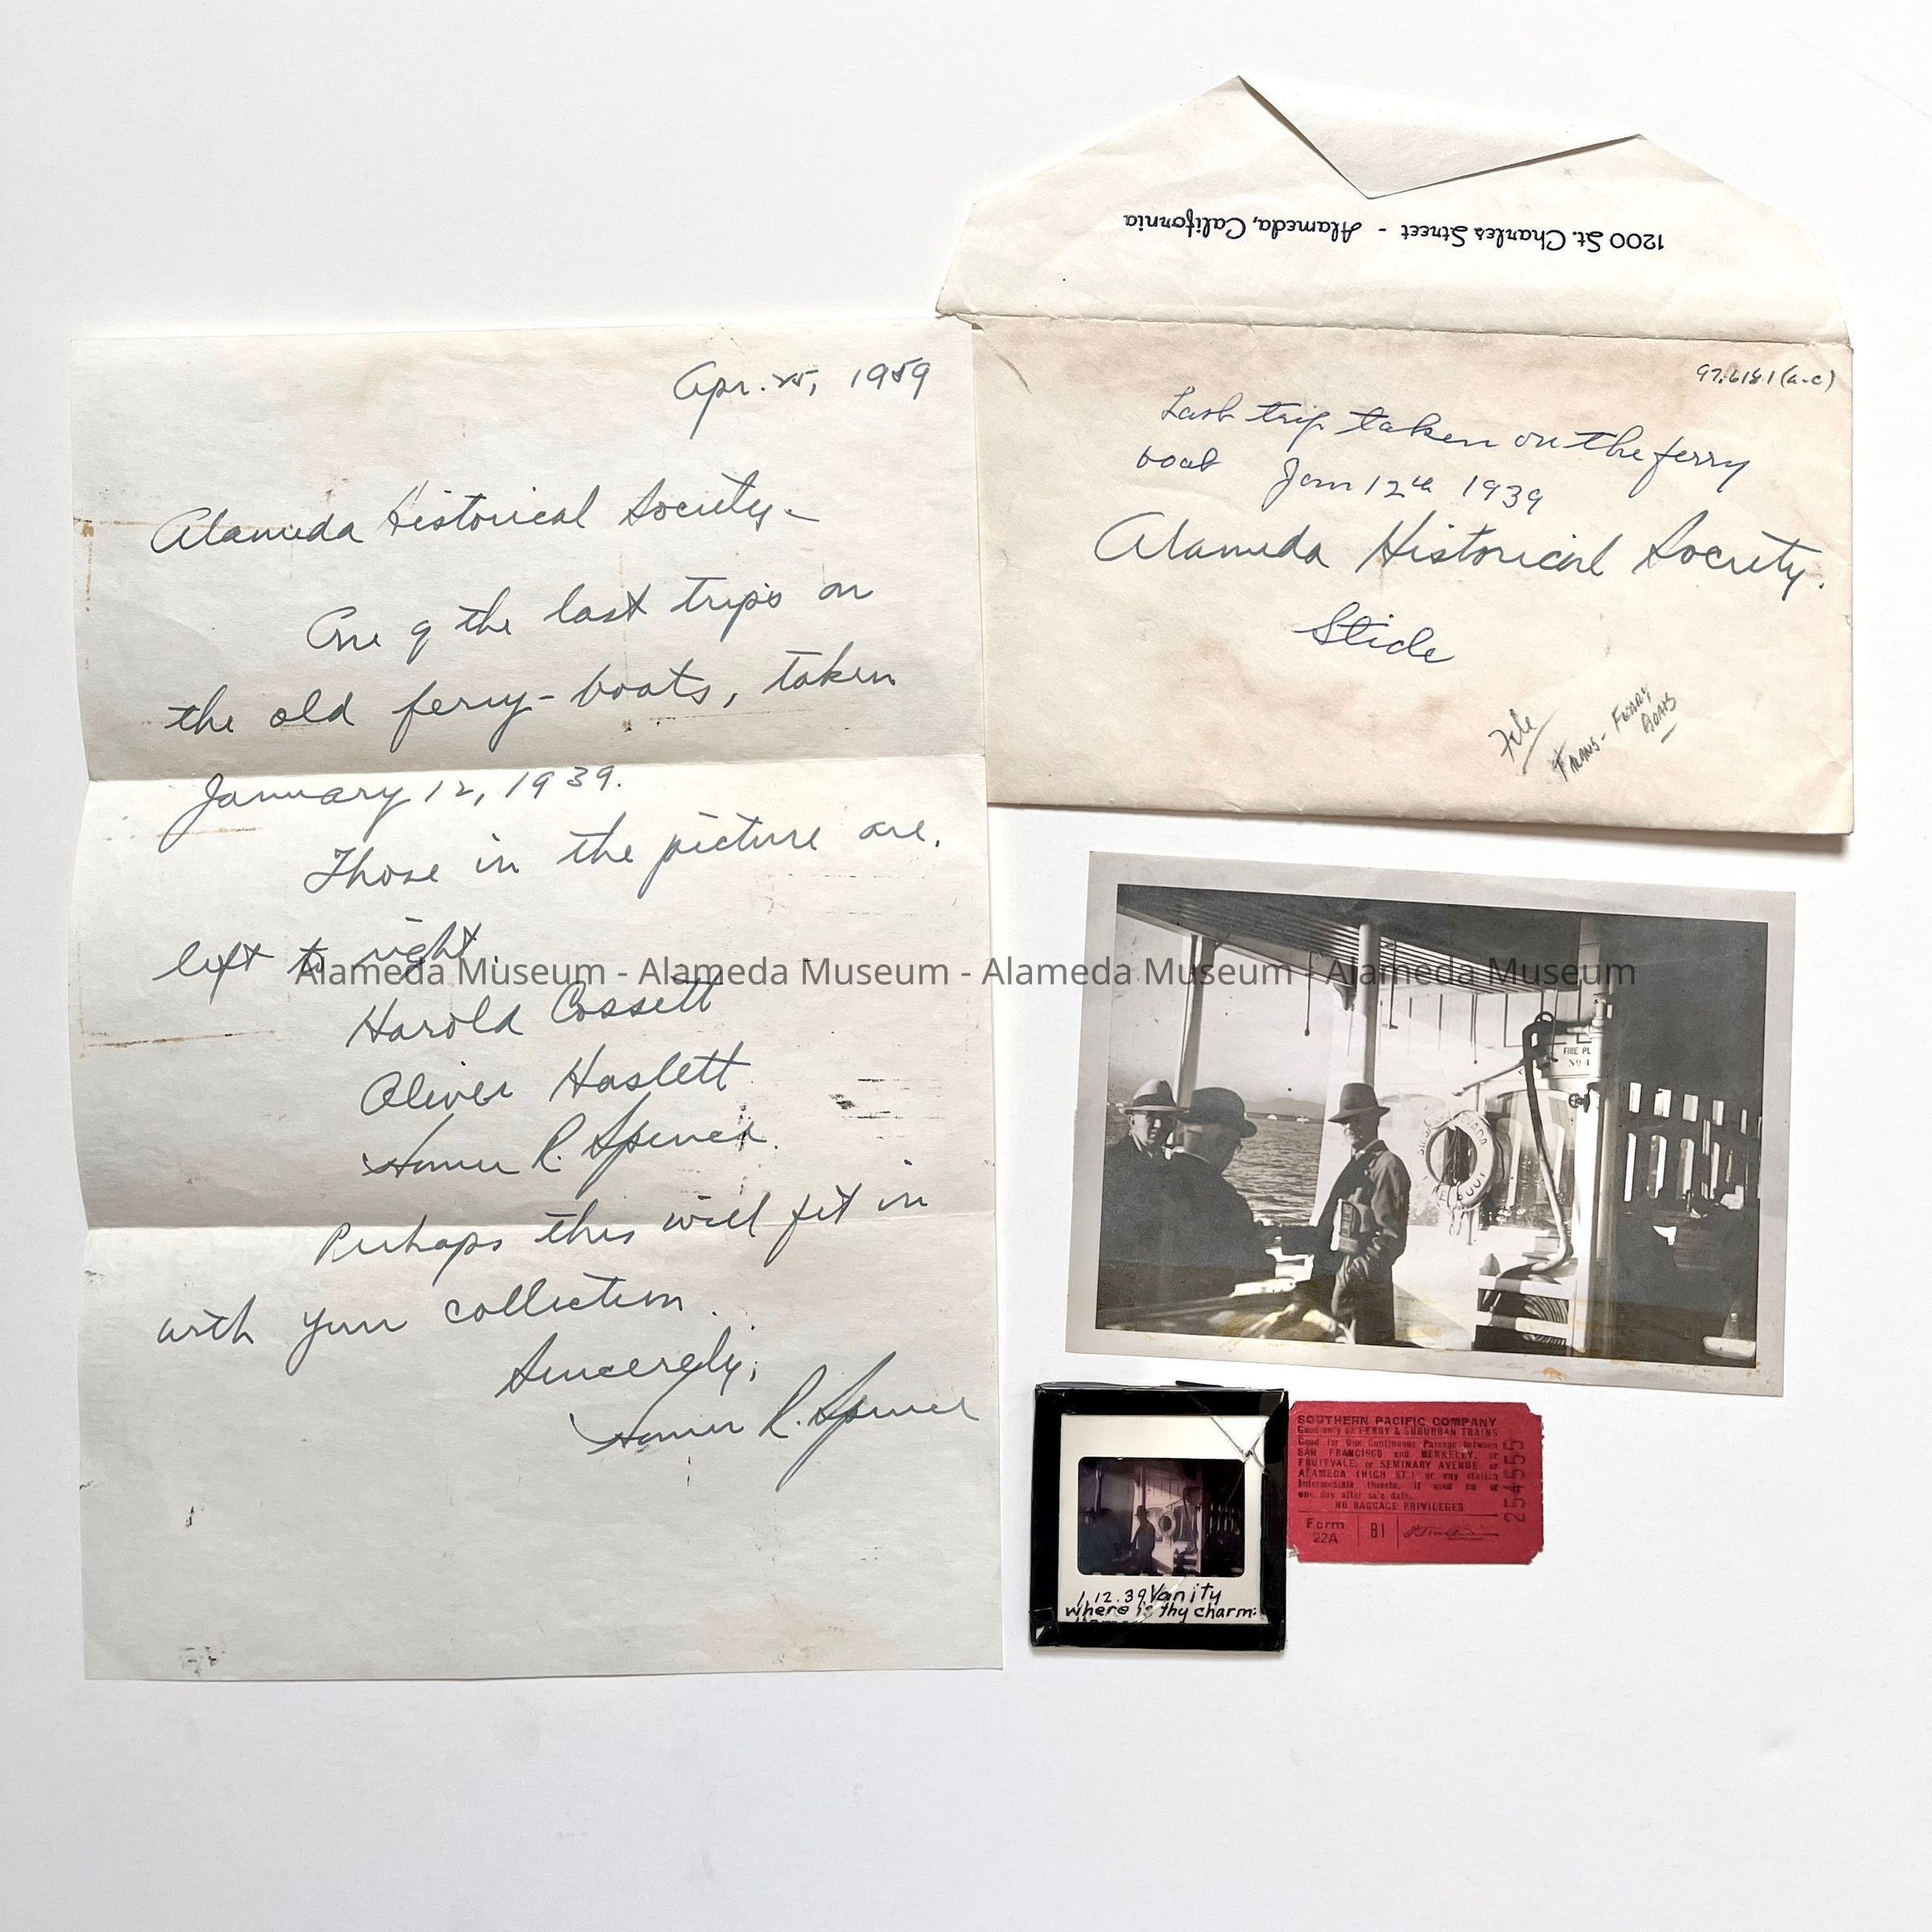 Apr. 25, 1959
Alameda Historical Society-
One of the last trips on
the old ferry-boats, taken
January 12, 1939.
Those in the picture are,
left to right
Harold Cossett
Oliver Haslett
Homer R. Spencer.
Perhaps this will fit in
with your collection.
Sincerely,
Homer R. Spencer
1200 St. Charles Street - Alameda, California
97.6181(a-c)
Last trip taken on the ferry
boat Jan 12th 1939
Alameda Historical Society.
Slide
File
Trans- Ferry
Boats
Alameda Museum - Alameda Museum - Alameda Museum - Alameda Museum
FIRE PL
No 1
1.12.39 Vanity
where is thy charm:
SOUTHERN PACIFIC COMPANY
Good only on FERRY & SUBURBAN TRAINS
Good for One Continuous Passage between
SAN FRANCISCO and BERKELEY, or
FRUITVALE, or SEMINARY AVENUE, or
ALAMEDA (HIGH ST.) or any station
Intermediate thereto, if used on or
one day after sale date.
NO BAGGAGE PRIVILEGES
Form
22A
B1
254555